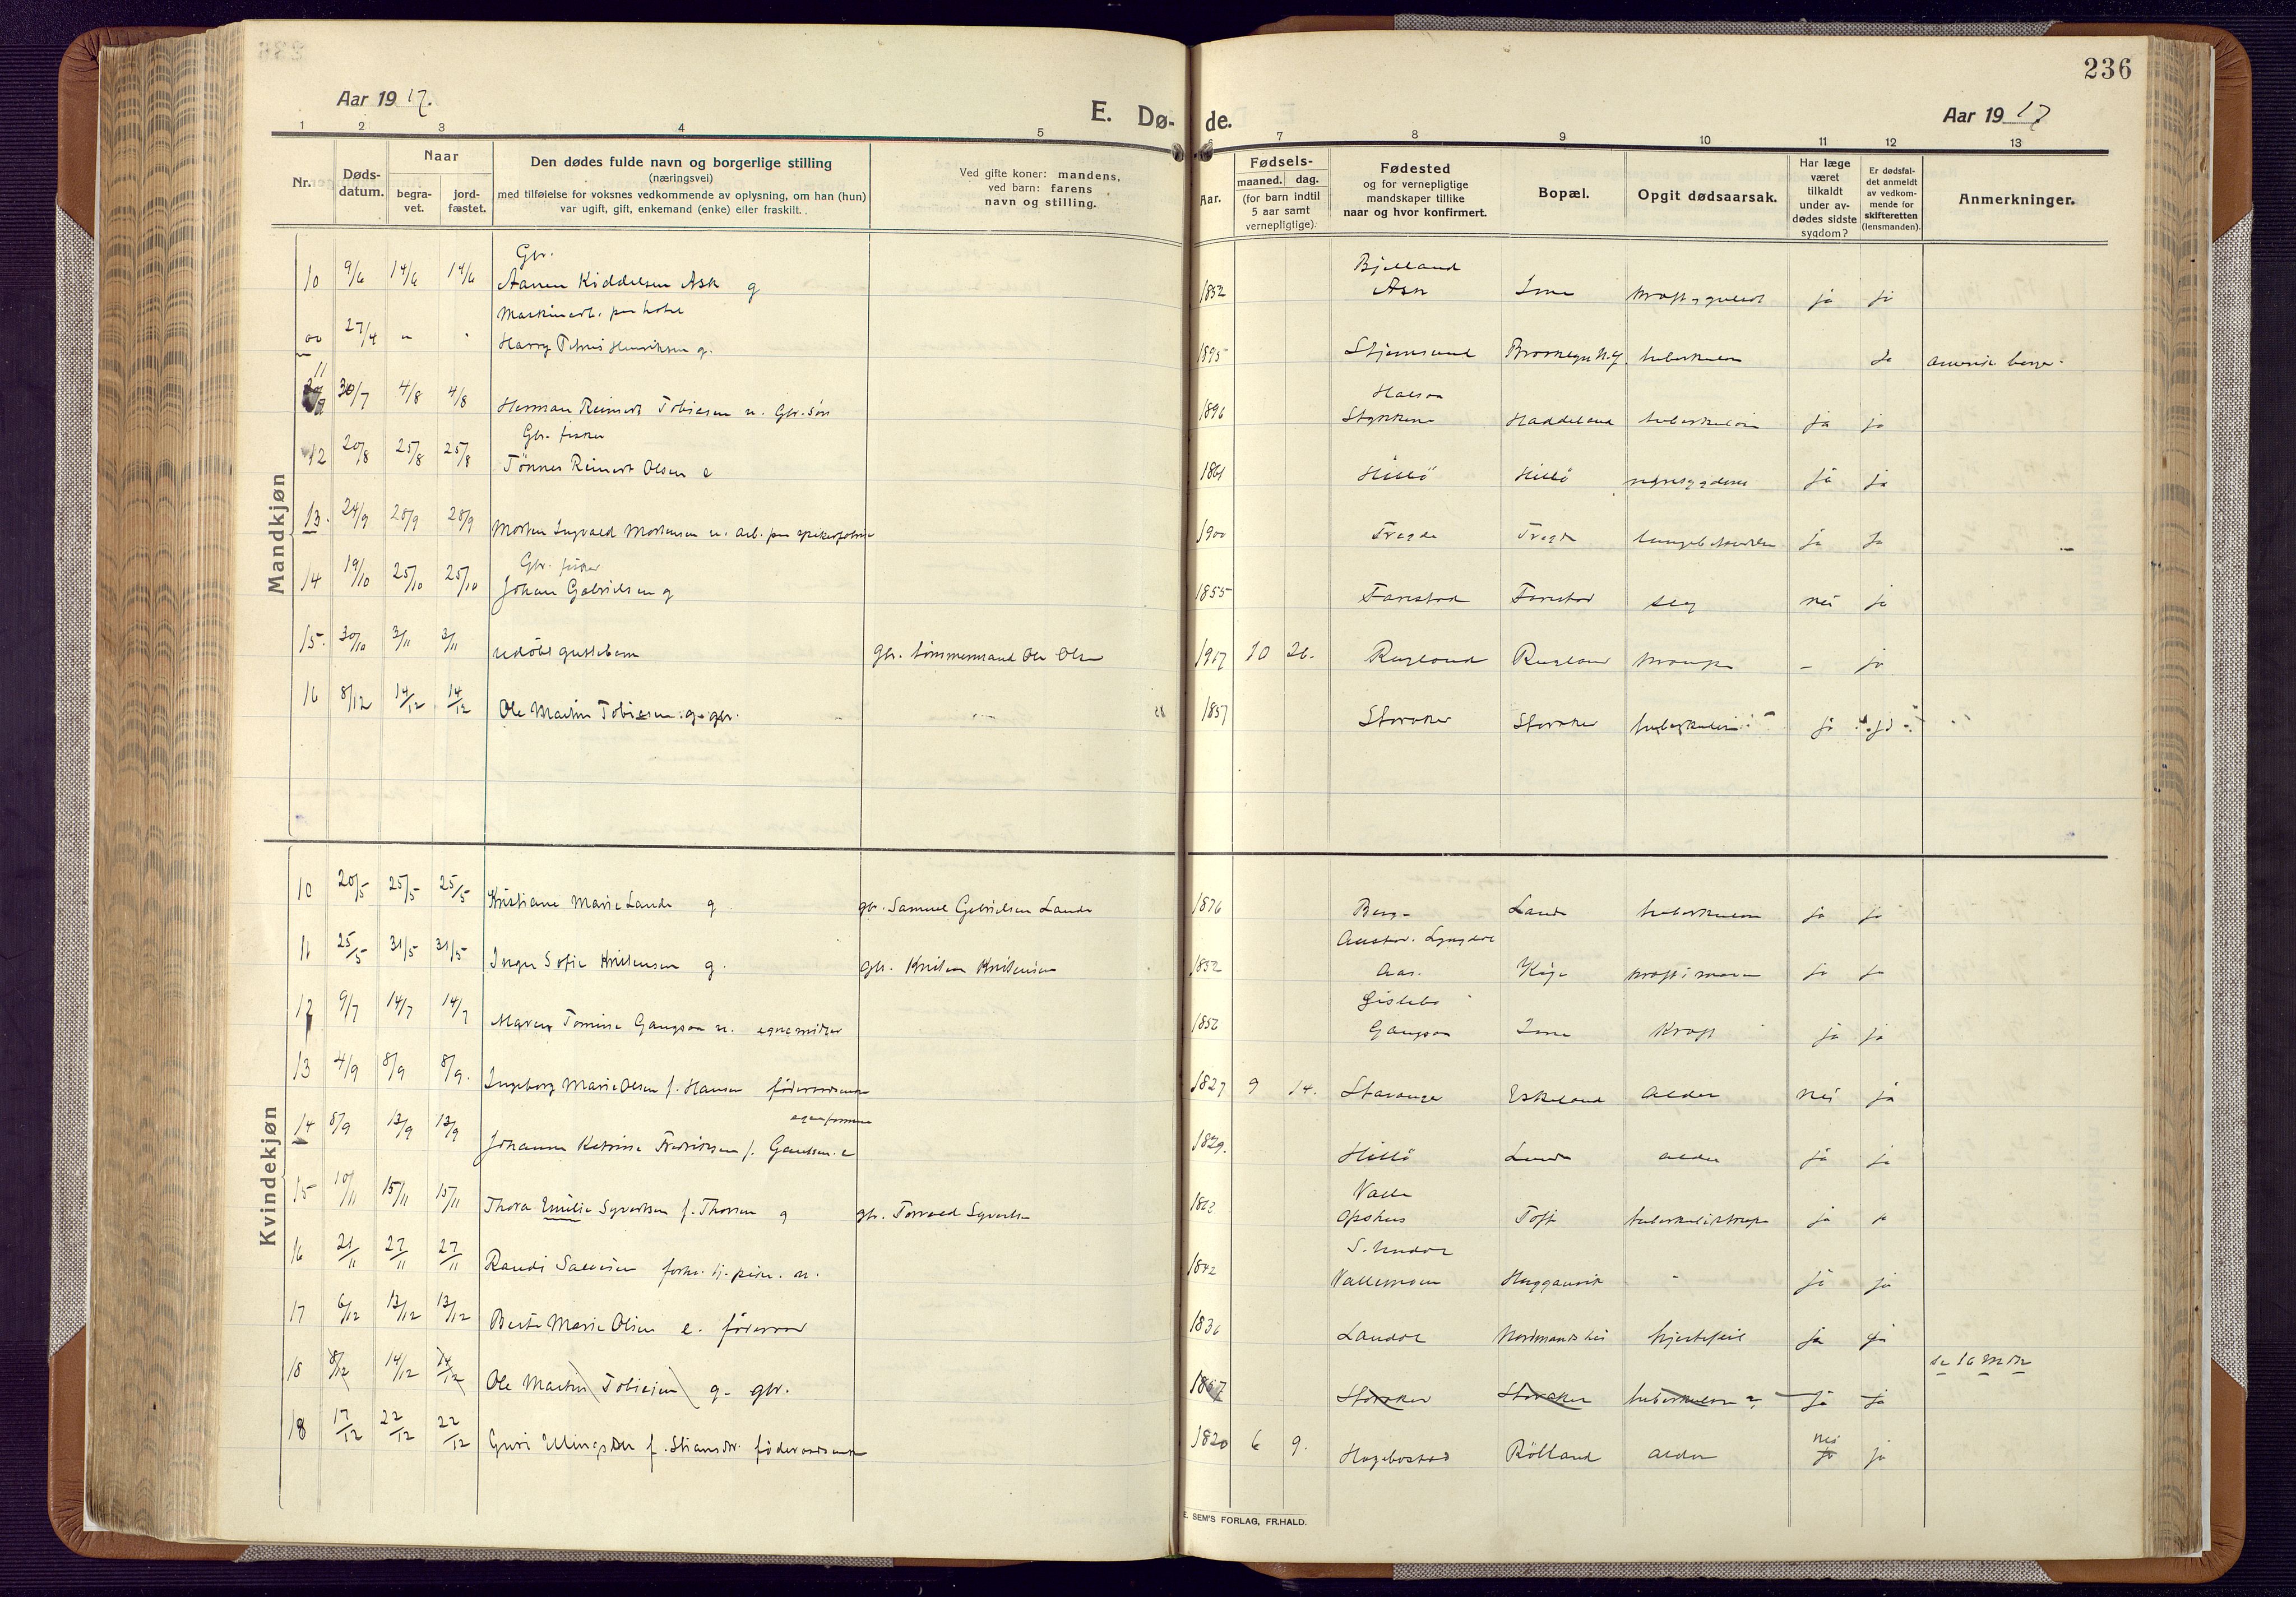 236
Aar 1917.
E. Dø-
de.
Aar 1917
1 2 3 4 5
7 8 9 10 11 12 13
Nr.
Døds-
datum.
Naar
begra-
vet.
jord-
fæstet.
Den dødes fulde navn og borgerlige stilling
(næringsvei)
med tilføielse for voksnes vedkommende av oplysning, om han (hun)
var ugift, gift, enkemand (enke) eller fraskilt.
Ved gifte koner: mandens,
ved barn: farens
navn og stilling.
Aar.
Fødsels-
maaned. dag.
(for barn indtil
5 aar samt
vernepligtige).
Fødested
og for vernepligtige
mandskaper tillike
naar og hvor konfirmert.
Bopæl.
Opgit dødsaarsak.
Har læge
været
tilkaldt
under av-
dødes sidste
sygdom?
Er dødsfal-
det anmeldt
av vedkom-
mende for
skifteretten
(lensmanden).
Anmerkninger.
Mandkjøn
Gbr. Bjelland
10 9/6 14/6 14/6 Aanen Kiddelsen Ask g 1852 Ask Ime ja ja
27/4 Harry Henriksen g. 1895 tuberkulose
Halsaa
11 30/7 4/8 4/8 Herman Reinert Tobiesen u. Gbr. søn 1896 Haddeland tuberkulose ja ja
Gbr. fisker
12 20/8 25/8 25/8 Tönnes Reinert Olsen e 1861 Hillö Hillö ja ja
13. 24/9 28/9 28/9 Morten Ingvald Mortensen u. arb. paa spikerfabrik 1900 Tregde Tregde ja ja
Gbr. fisker
14 19/10 25/10 25/10 Johan Gabrielsen g 1855 Farestad Farestad slag nei ja
15. 30/10 3/11 3/11 udöbt guttebarn gbr. tömmermand Ole Olsen 1917 10 26. Rugland Rugland krampe - ja
16 8/12 14/12 14/12 Ole Martin Tobiesen g. gbr. 1857 Storaker Storaker tuberkulose ja ja
Kvindekjøn
10 20/5 25/5 25/5 Kristiane Marie Lande g gbr. Samuel Gabrielsen Lande 1876 Berge Lande tuberkulose ja ja
Lyngdal
11 25/5 31/5 31/5 Inger Sofie Knutsen g. gbr. Knut Knutsen 1852 Aas. ja ja
12 9/7 14/7 14/7 Maren Tomine Gangsaa u. egne midler 1852 Gangsaa Ime Kræft ja ja
13 4/9 8/9 8/9. Ingeborg Marie Olsen f. Hansen föderaadsenke 1827 9 14. Stavanger Eskeland alder nei ja
egen formue
14 8/9 13/9 13/9 Johanne Katrine Fredriksen f. Gautsen. e 1829. Hillö alder ja ja
Valle
15 10/11 15/11 15/11 Thora Emilie Syvertsen f. Thorsen g gbr. Torvald Syvertsen Opshus Toft ja ja
S. Undal
16 21/11 27/11 27/11 Randi Salvesen u. 1842 Vallemoen ja ja
17 6/12 13/12 13/12 Berte Marie Olsen e. föderaad 1836 Landal Nordmandshei hjertefeil ja ja
se 16 mdk
18 8/12 14/12 14/12 Ole Martin Tobiesen g. gbr. 1857 Storaker Storaker tuberkulose ja ja
nei
18 17/12 22/12 22/12 Guri föderaadsenke 1820 6 9. Hægebostad Rölland alder ja ja
E. SEM'S FORLAG, FR.HALD.